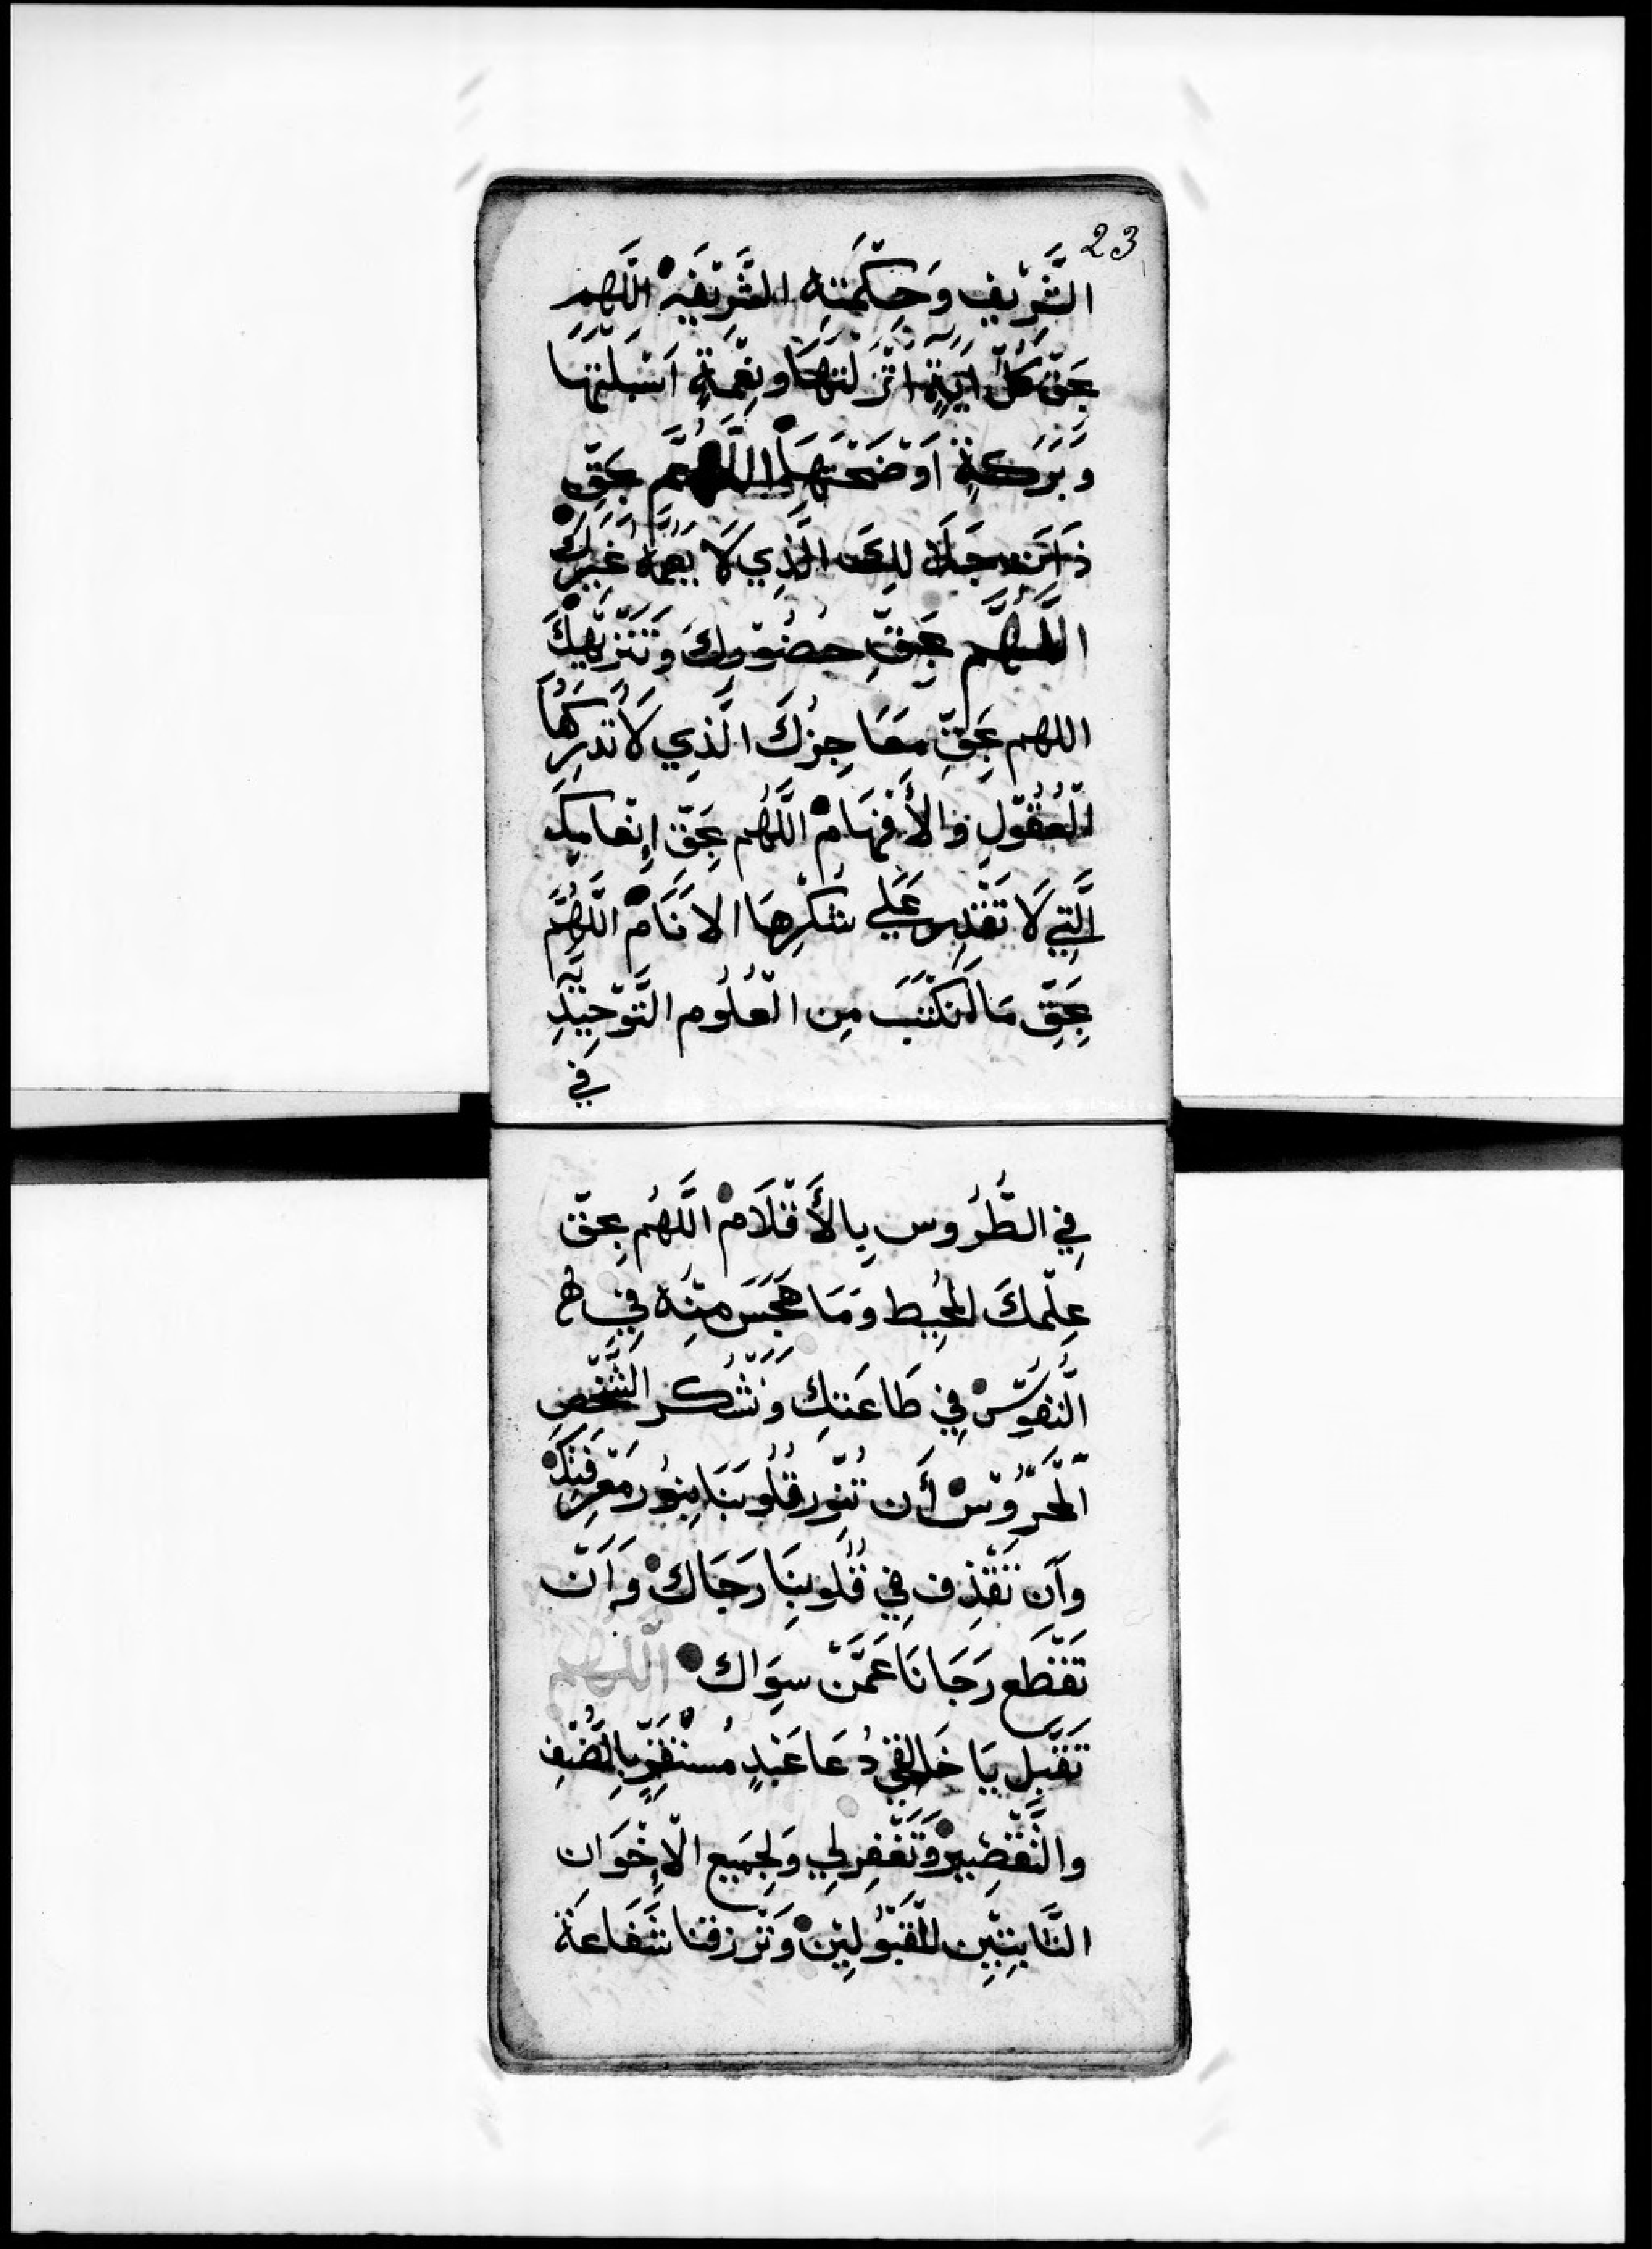 23
الشَّرِيْفِ وَحِكْمَتِهِ الشَّرِيْفَهْ اللَّهم
بِحَقِّ كُلِّ آيَةٍ اَنْزَلْتَهَا وَنِعْمَةٍ اَسْبَلْتَهَا
وَبَرَكَةٍ اَوْضَحْتَهَا اللَّهُمَّ بِحَقِّ
الَّذِي لَا غَيْرَكْ
اللَّهُمَّ بِحَقِّ حُضُوْرِكَ وَتَنْزِيْهِكَ
اللهم بِحَقِّ مَعَاجِزِكَ الَّذِي لَا تُدْرِكُهَا
الْعُقُوْلِ وَالأَفْهَامْ اللَّهُم بِحَقِّ إِنْعَامِكَ
الَّتِي لَا تَقْدِر عَلَى شُكْرِهَا الانَامْ اللَّهُمَّ
بِحَقِّ مَا انكَتَبَ مِن الْعُلُوم التَّوْحِيْدِيَّه
فِي
فِي الطُّرُوس بِالأَقْلَامْ اللَّهُم بِحَقّ
عِلْمكَ المُحِيْط وَمَا هَجَسَ مِنْهُ فِي
النُّفُوْسْ فِي طَاعَتِكِ وَنَشْكر الشَّخْصِ
الْمَحْرُوْسْ أَن تُنَوِّر قُلُوْبَنَا بِنُوْر مَعْرِفَتِكْ
وَاَن تَقْذِف فِي قُلُوبِنَا رَجَاكْ وَاَنْ
تَقْطَع رَجَانَا عَمَّنْ سِوَاك اللهم
تَقَبَّل يَا خَالِقِي دُعَا عَبْدٍ مُسْتَقِرٍّ بِالضُّعْفِ
وَالتَّقْصِيْرْ وَتَغْفِر لِي وَلِجَمِيع الْإِخْوَان
التَّابِتِيْن المَقْبُوْلِيْنْ وَتَرْزقنا شَفَاعَة